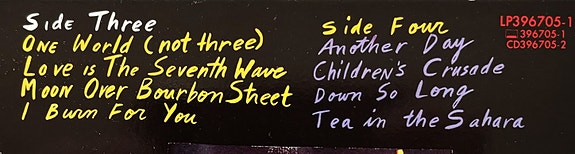 Side Three
One World (not three)
Love is The Seventh Wave
Moon Over Bourbon Street
I Burn For You
Side Four
Another Day
Children's Crusade
Down So Long
Tea in the Sahara
LP396705-1
396705-1
CD396705-2